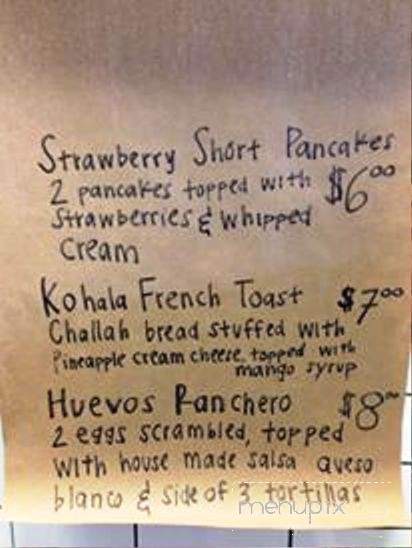 Strawberry Short Pancakes
2 pancakes topped with $6.00
strawberries & whipped
cream
Kohala French Toast $7.00
Challah bread stuffed with
Pineapple cream cheese, topped with
mango syrup
Huevos Ranchero $8
2 eggs scrambled, topped
with house made salsa queso
blanco & side of 3 tortillas
menupix